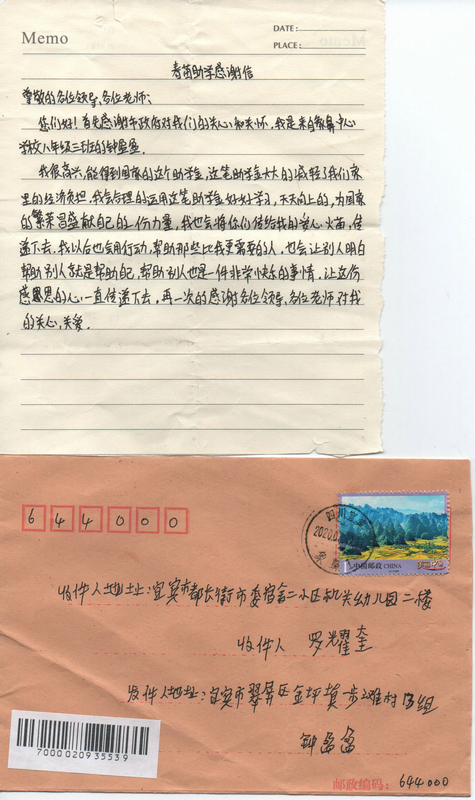 Memo
DATE:
PLACE:
春苗助学感谢信
尊敬的各位领导、各位老师:
您们好!首先感谢市政府对我们的关心和关怀,我是来自
学校八年级三班的钟盈盈。
我很高兴,能得到国家的这个助学金,这笔助学金大大的减轻了我们家
里的经济负担,我会合理的运用这笔助学金好好学习,天天向上的,为国家
的繁荣昌盛献自己的一份力量,我也会将你们传给我的爱心火苗,传
递下去,我以后也会用行动,帮助那些比我更需要的人,也会让别人明白
帮助别人就是帮助自己,帮助别人也是一件非常快乐的事情,让这份
感恩的心一直传递下去,再一次的感谢各位领导、各位老师对我
的关心、关爱。
644000
四川宜宾
2020.0
中国邮政 CHINA
收件人地址:宜宾市都长街市委宿舍二小区机关幼儿园二楼
收件人 罗耀奎
发件人地址:宜宾市翠屏区金坪镇步滩村13组
钟盈盈
7000020935539
邮政编码: 644000